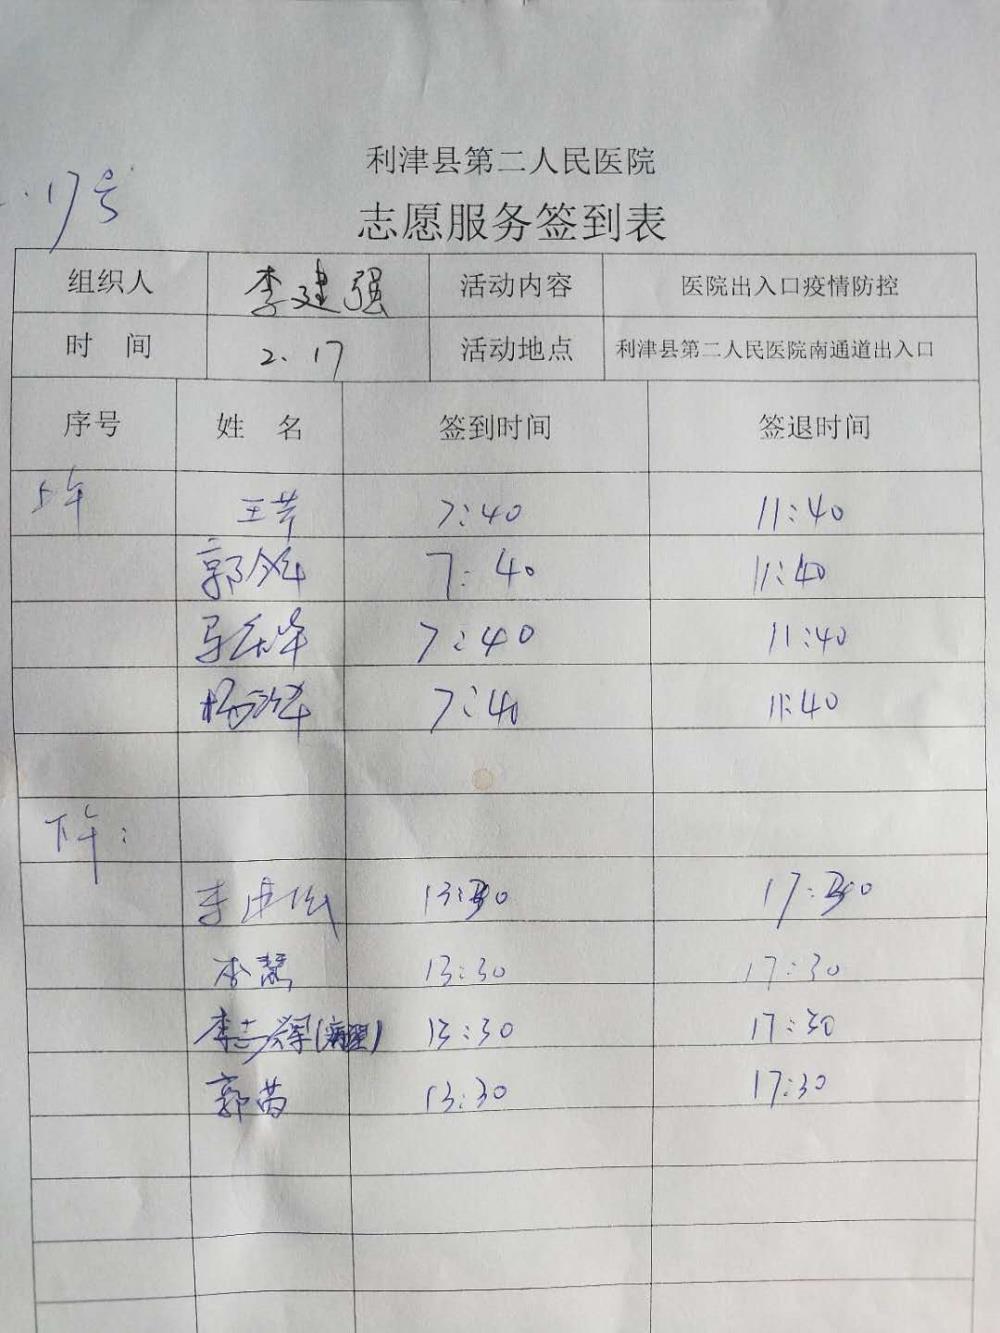 利津县第二人民医院
17号
志愿服务签到表
组织人 李建强 活动内容 医院出入口疫情防控
时 间 2.17 活动地点 利津县第二人民医院南通道出入口
序号 姓 名 签到时间 签退时间
上午 王芹 7:40 11:40
7:40 11:40
7:40 11:40
7:40 11:40
下午:
13:30 17:30
李慧 13:30 17:30
李志军(病理) 13:30 17:30
郭苗 13:30 17:30